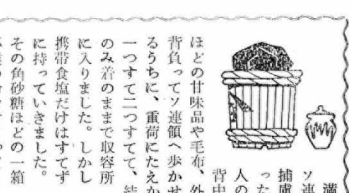 満
ソ連
捕虜
った
人の
背中
ほどの甘味品や毛布、外
背負ってソ連領へ歩かせ
るうちに、重荷にたえか
一つすて二つすてて、結
のみ着のままで収容所
に入りました。しかし
携帯食塩だけはすてず
に持っていきました。
その角砂糖ほどの一箱